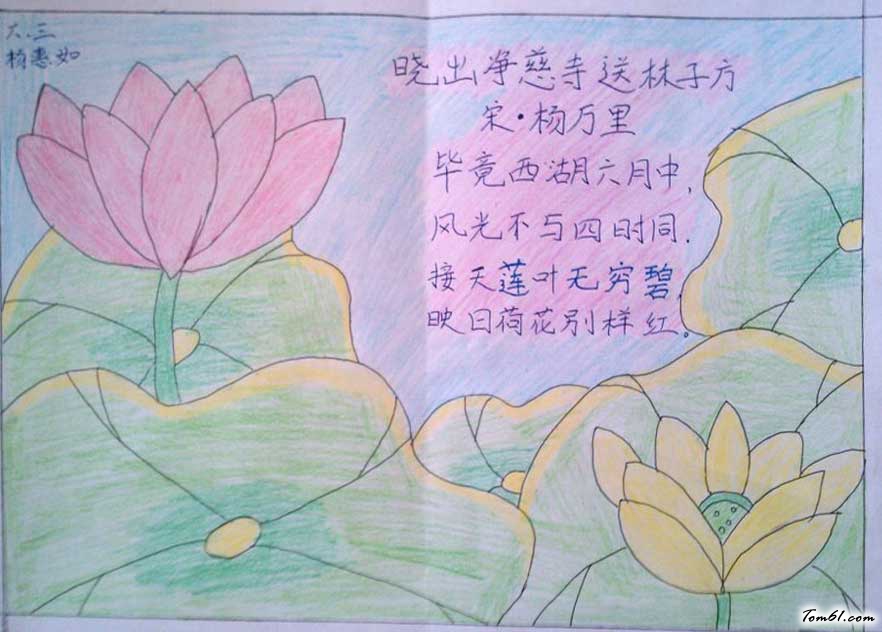 六.三
杨惠如
晓出净慈寺送林子方
宋·杨万里
毕竟西湖六月中,
风光不与四时同.
接天莲叶无穷碧,
映日荷花别样红。
Tom61.com